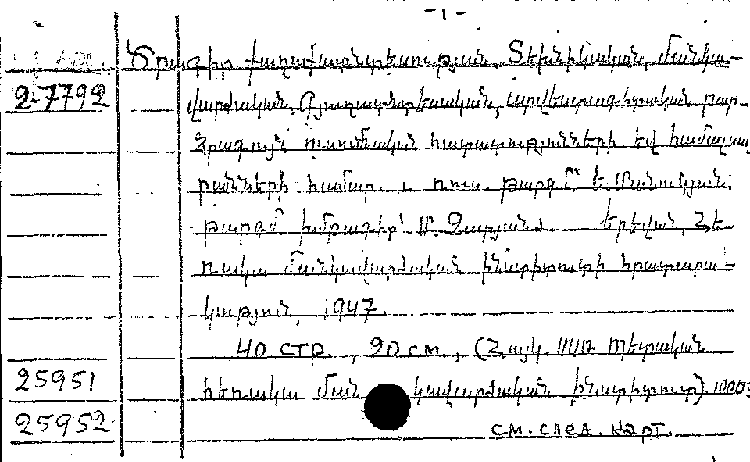 -1-
Ծրագիր քաղաքատնտեսության. Տեխնիկական, մանկա-
2-7792 վարժական, Գյուղատնտեսական, արվեստագիտական բար-
ձրագույն ուսումնական հաստատությունների եվ համալսա
րանների համար. Ռուս. թարգմ. Ե. Մանուկյան.
թարգմ. խմբագիր՝ Մ. Զարյան. Երեվան, Հե
ռակա մանկավարժական ինստիտուտի հրատարա-
կություն, 1947.
40 стр., 20 см., (Հայկ. ՍՍՌ Պետական
25951 հեռակա ման կավարժական ինստիտուտ).
25952 см. след. карт.